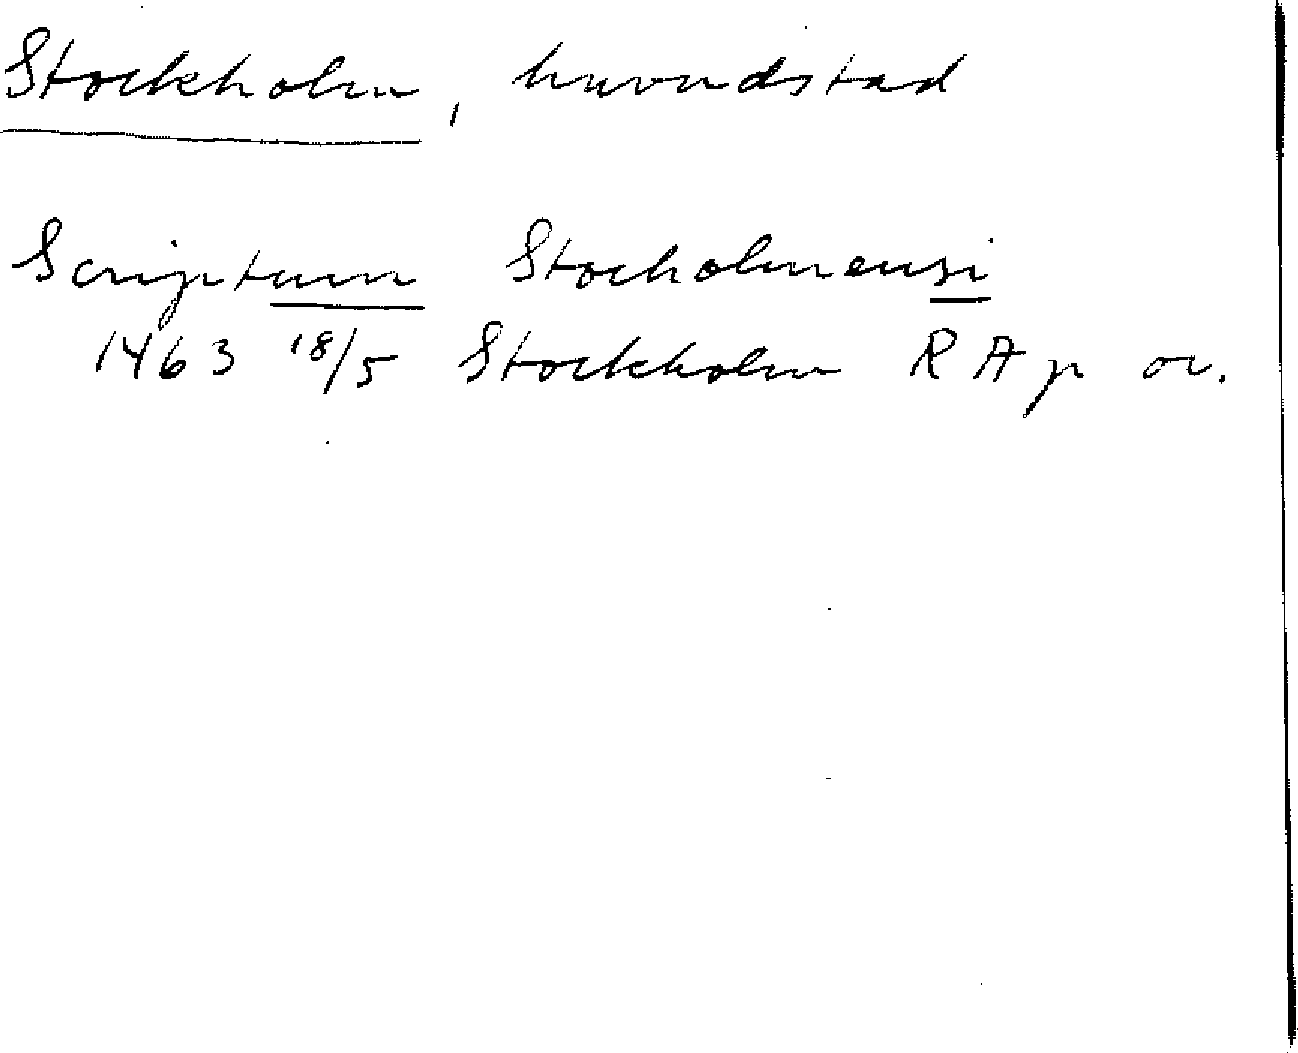 Stockholm, huvudstad
Scriptum Stocholmensi
1463 18/5 Stockholm RAp or.